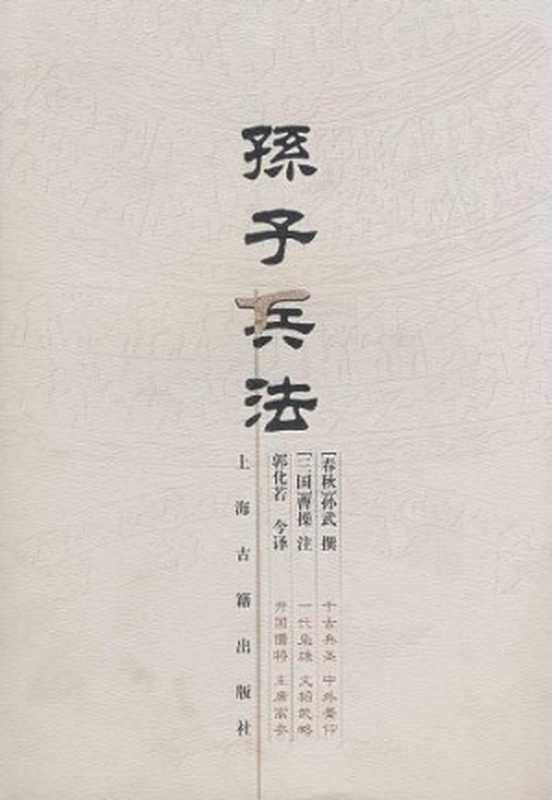 孫子兵法
[春秋]孙武 撰
[三国]曹操 注
郭化若 今译
千古兵圣 中外景仰
一代枭雄 文韬武略
开国儒将 主席高参
上海古籍出版社